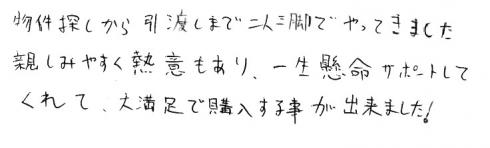 物件探しから引渡しまで二人三脚でやってきました
親しみやすく熱意もあり、一生懸命サポートして
くれて、大満足で購入する事が出来ました!